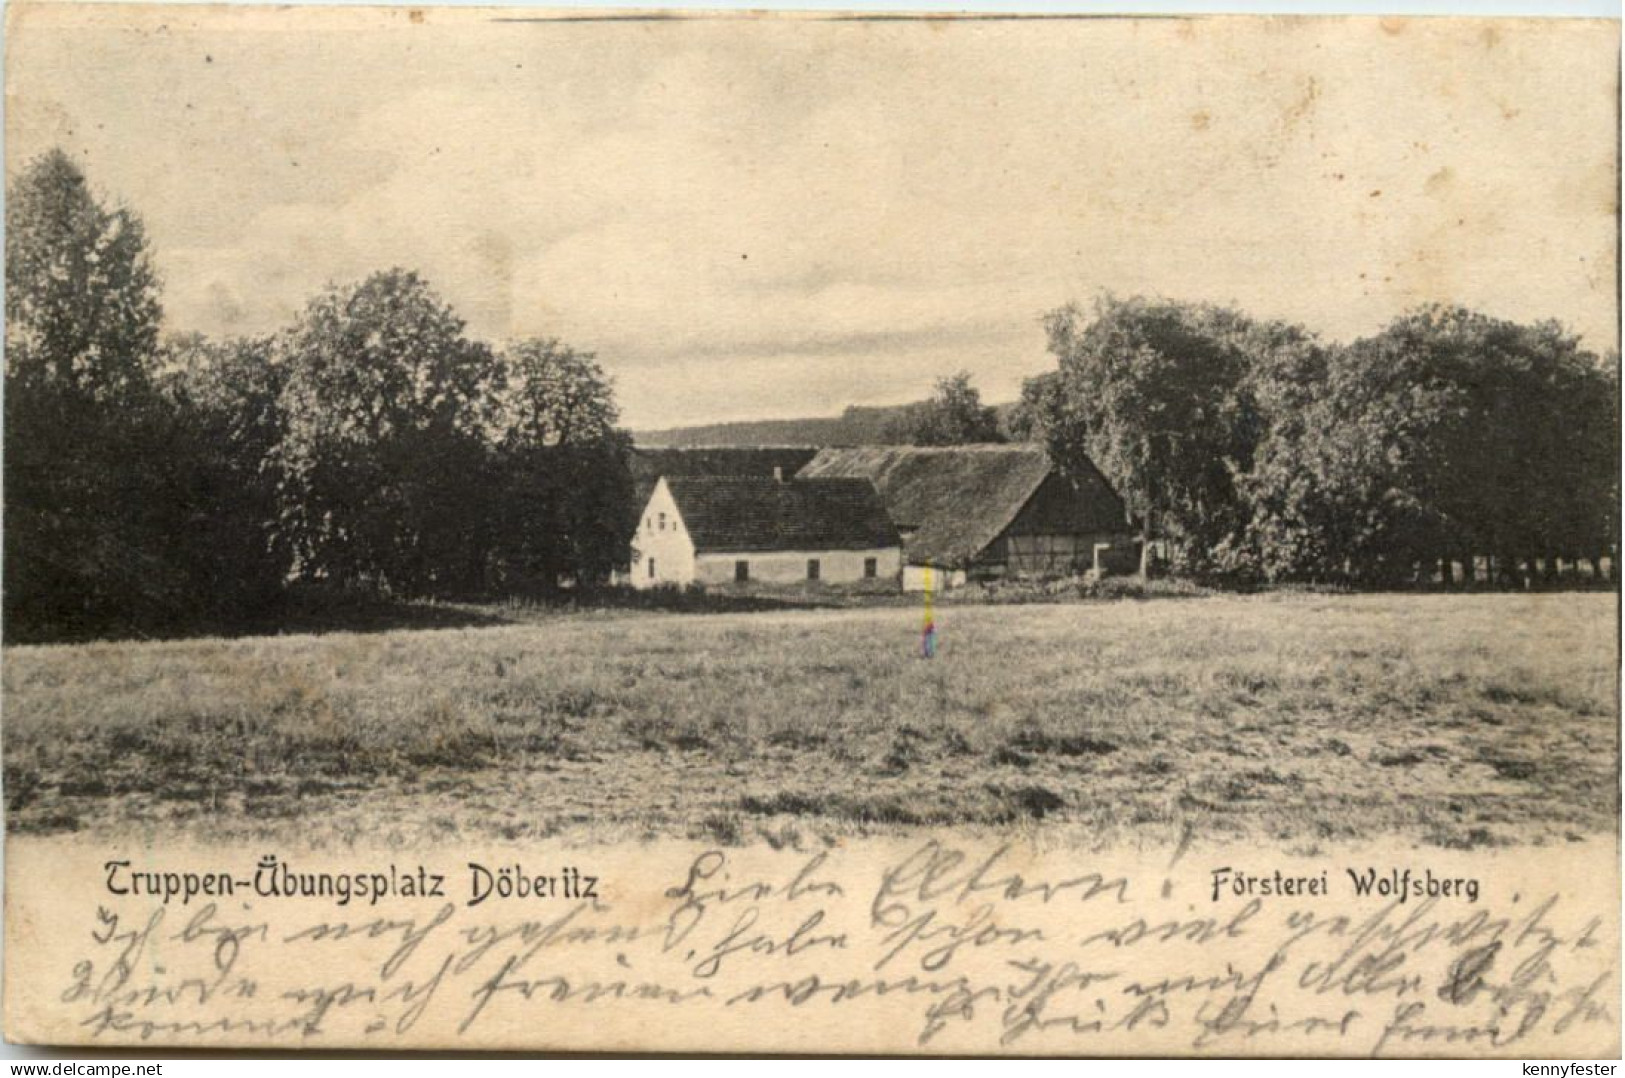 Truppen-Übungsplatz Döberitz Liebe Eltern! Försterei Wolfsberg
Ich bin noch gesund, habe schon viel geschwitzt
Würde mich freuen wenn Ihr mich Alle
kommt. Es Grüßt Euer Emil
www.delcampe.net kennyfester